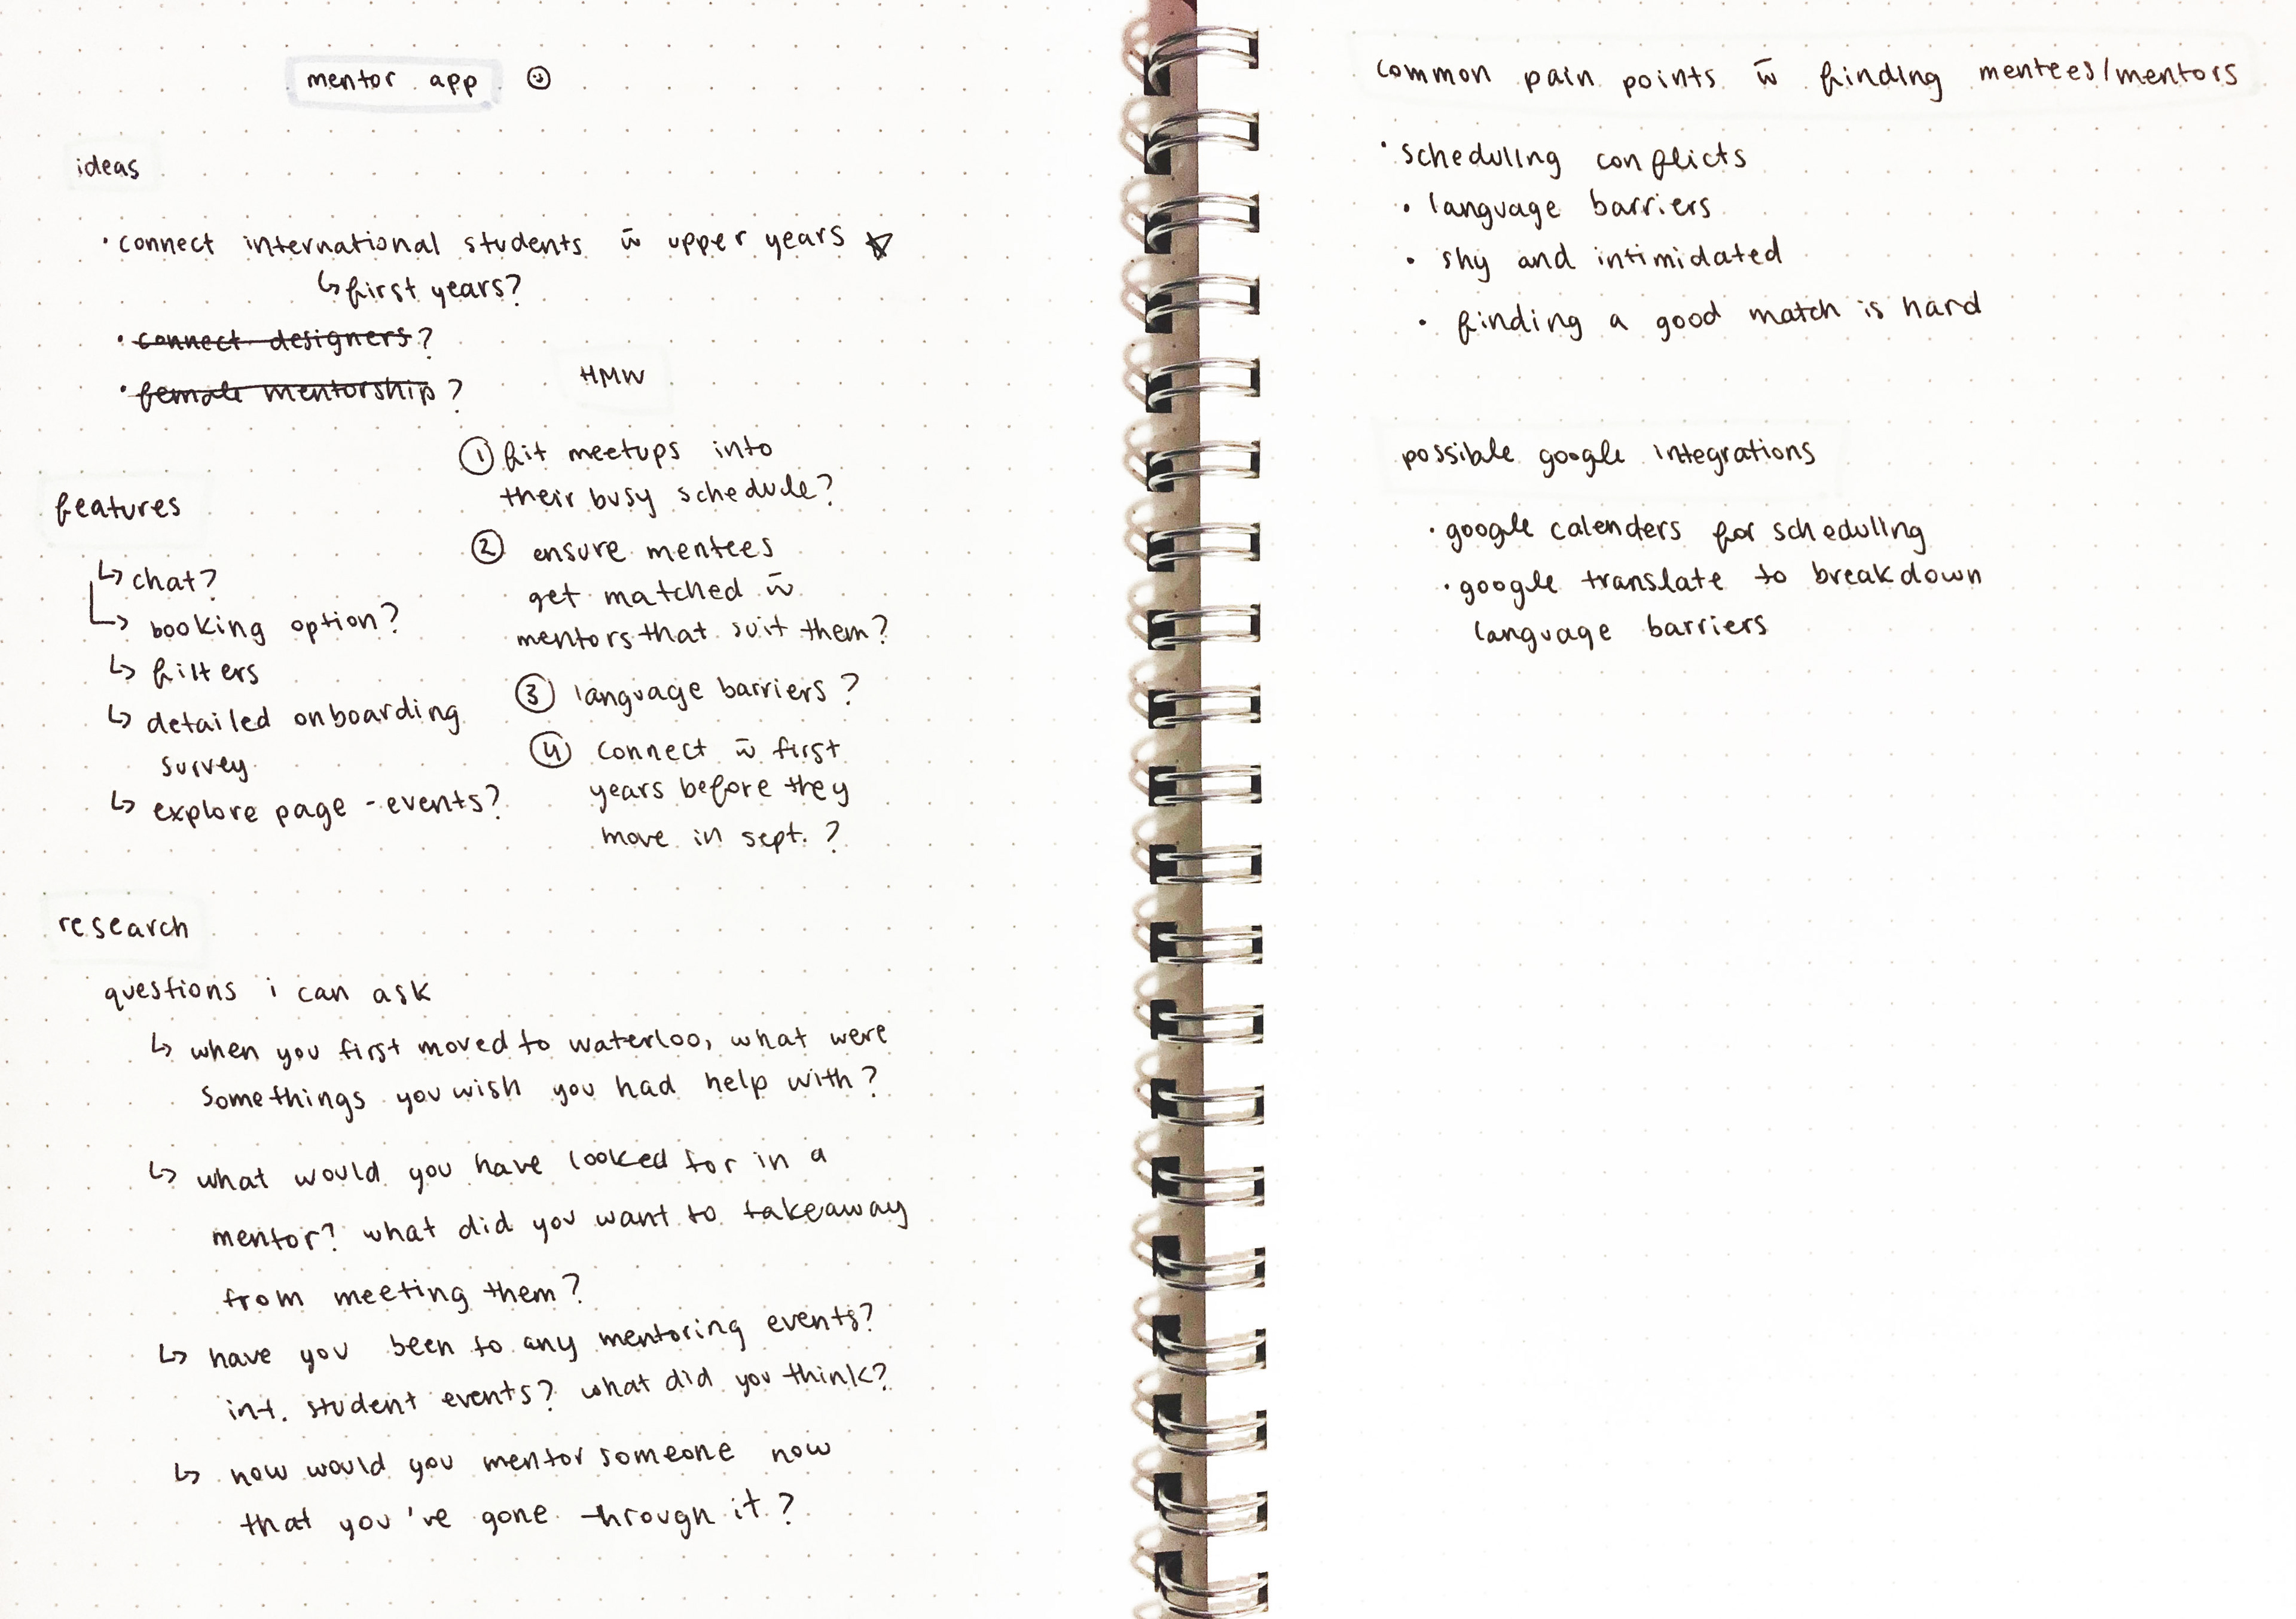 mentor app
ideas
• connect international students w̄ upper years
↳ first years?
• connect designers?
• female mentorship?
HMW
① fit meetups into
their busy schedule?
② ensure mentees
get matched w̄
mentors that suit them?
③ language barriers?
④ connect w̄ first
years before they
move in sept. ?
features
↳ chat?
↳ booking option?
↳ filters
↳ detailed onboarding
survey
↳ explore page - events?
research
questions i can ask
↳ when you first moved to waterloo, what were
somethings you wish you had help with?
↳ what would you have looked for in a
mentor? what did you want to takeaway
from meeting them?
↳ have you been to any mentoring events?
int. student events? what did you think?
↳ how would you mentor someone now
that you've gone through it?
common pain points w̄ finding mentees/mentors
• scheduling conflicts
• language barriers
• shy and intimidated
• finding a good match is hard
possible google integrations
• google calenders for scheduling
• google translate to breakdown
language barriers